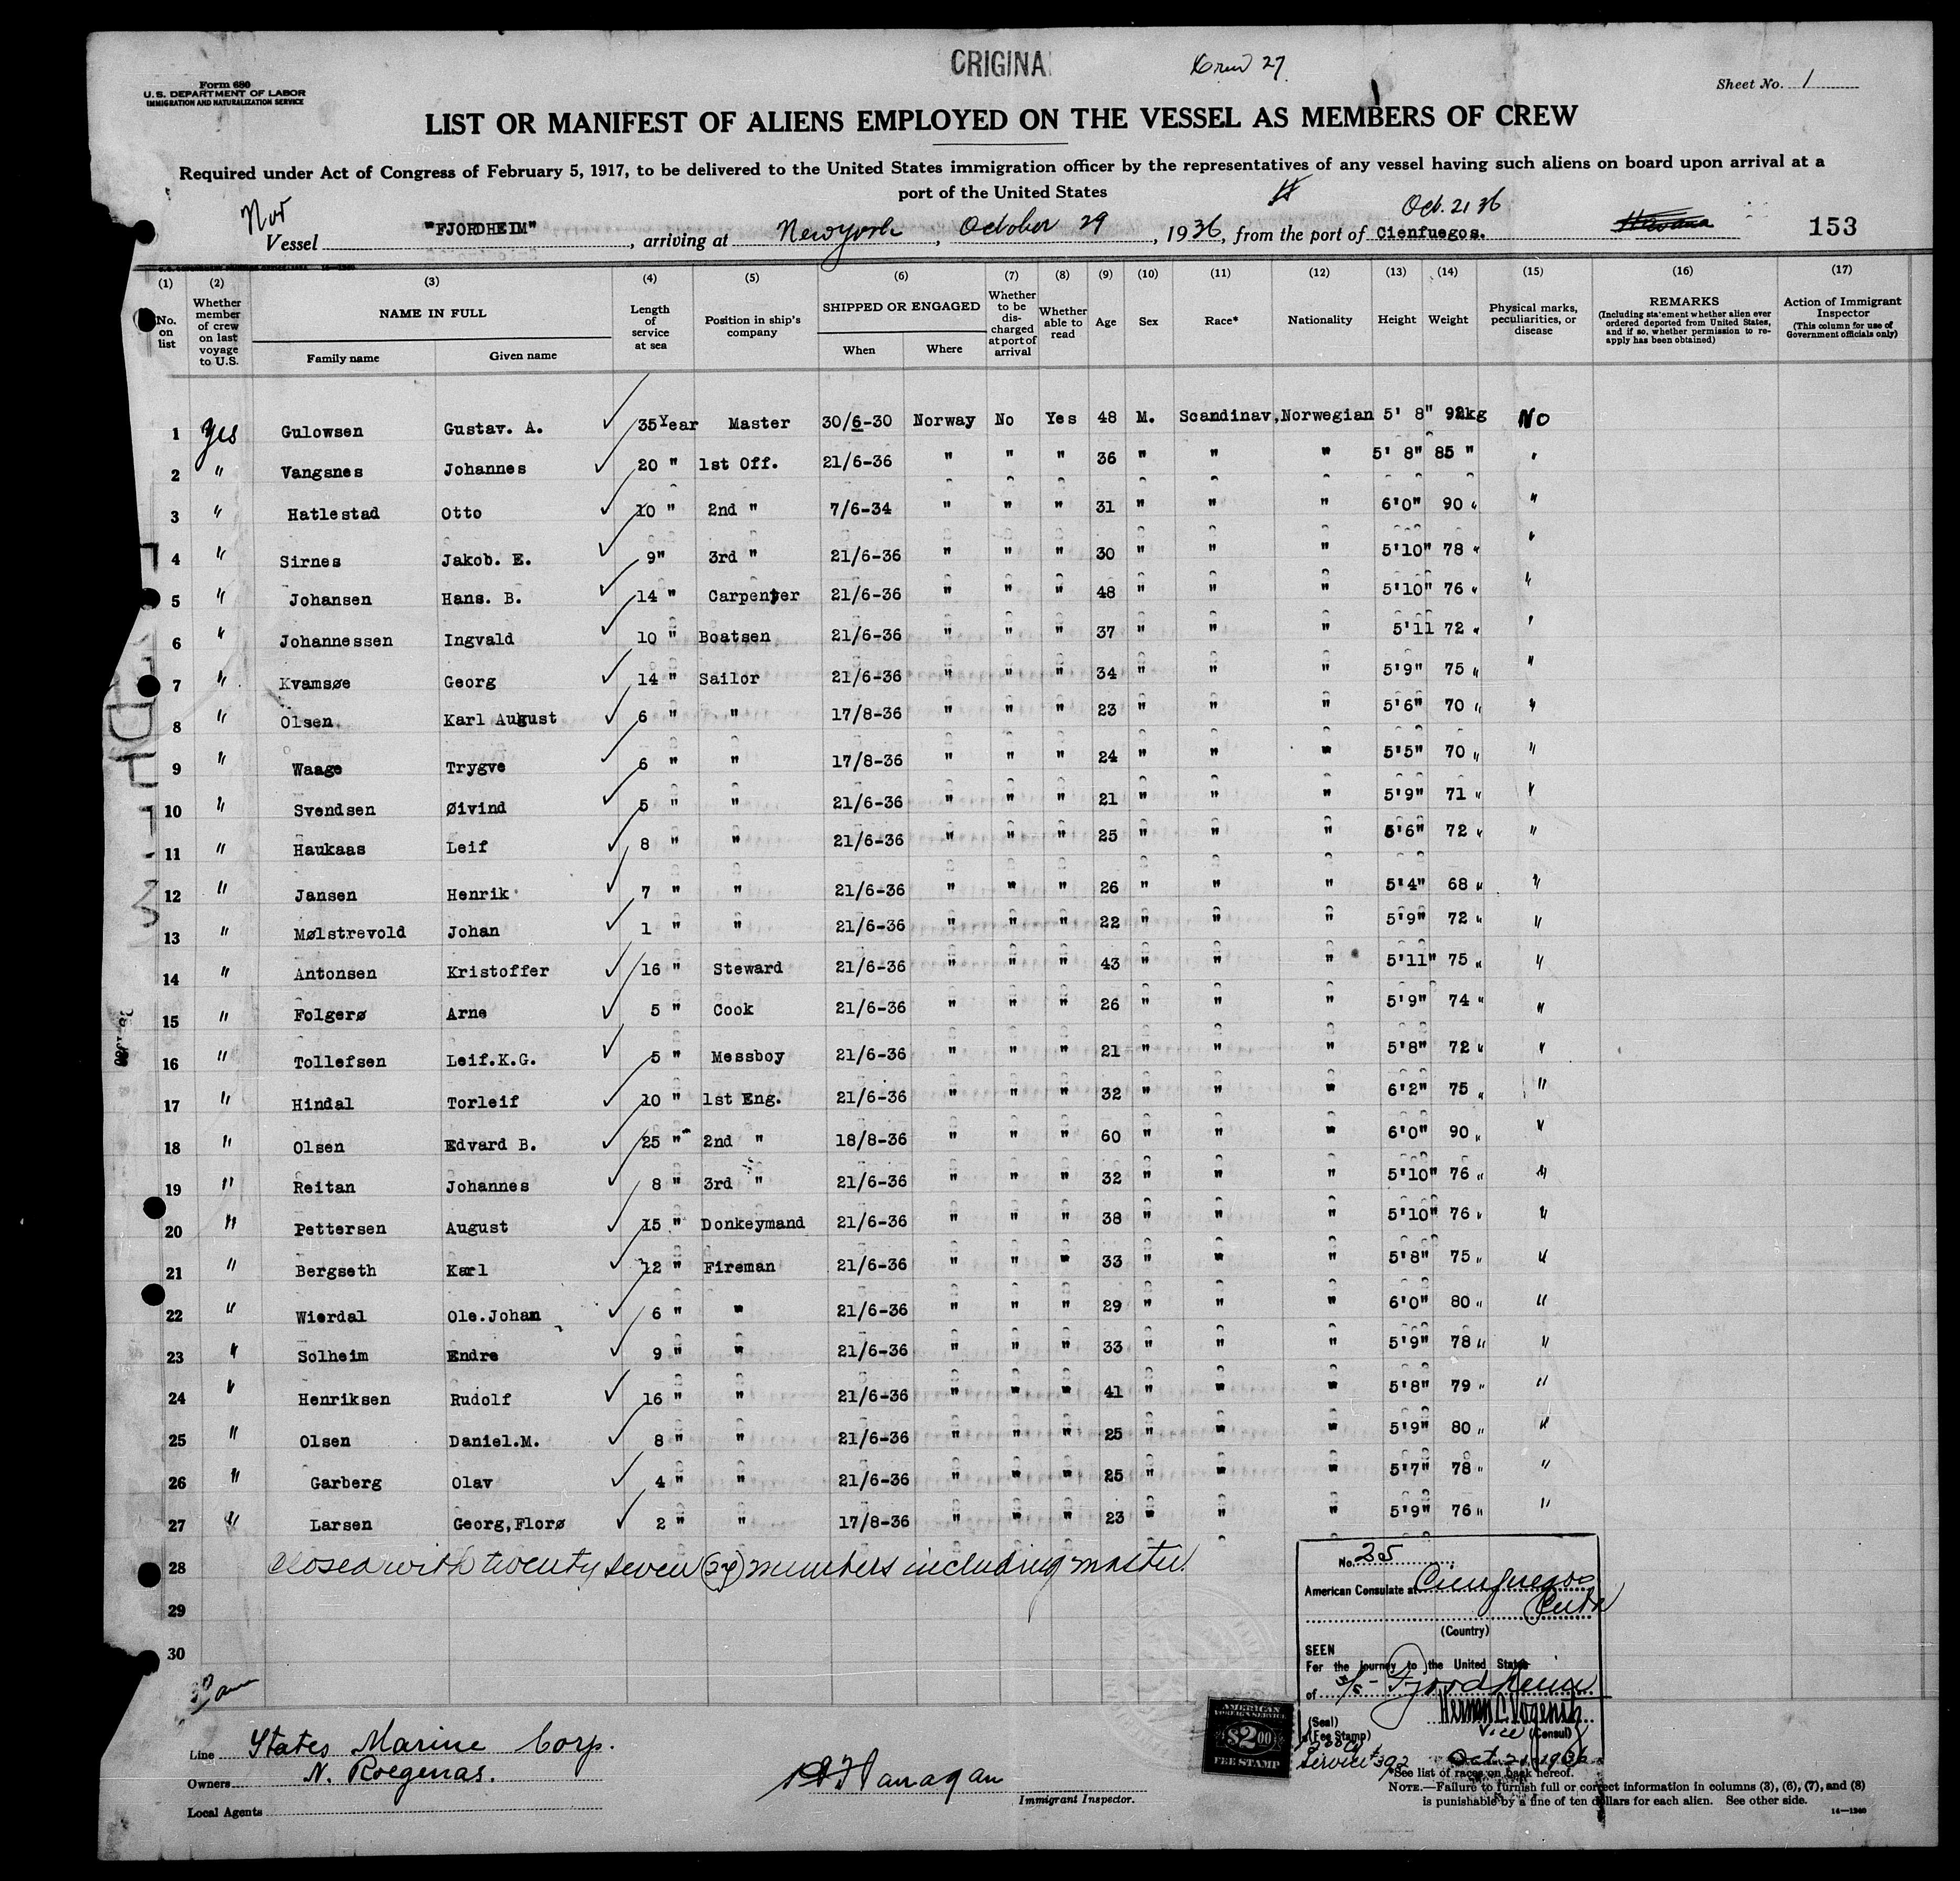 CRIGINA
Crew 27
Form 680
U. S. DEPARTMENT OF LABOR
IMMIGRATION AND NATURALIZATION SERVICE
Sheet No. 1
LIST OR MANIFEST OF ALIENS EMPLOYED ON THE VESSEL AS MEMBERS OF CREW
Required under Act of Congress of February 5, 1917, to be delivered to the United States immigration officer by the representatives of any vessel having such aliens on board upon arrival at a
port of the United States
Nor
Oct. 21 36
Vessel "FJORDHEIM", arriving at New york, October 29, 1936, from the port of Cienfuegos. 153
(1) (2) (3) (4) (5) (6) (7) (8) (9) (10) (11) (12) (13) (14) (15) (16) (17)
No. on list
Whether member of crew on last voyage to U.S.
NAME IN FULL
Family name
Given name
Length of service at sea
Position in ship's company
SHIPPED OR ENGAGED
When
Where
Whether to be discharged at port of arrival
Whether able to read
Age
Sex
Race*
Nationality
Height
Weight
Physical marks, peculiarities, or disease
REMARKS
(Including statement whether alien ever ordered deported from United States, and if so, whether permission to reapply has been obtained)
Action of Immigrant Inspector
(This column for use of Government officials only)
1 Yes Gulowsen Gustav. A. 35 Year Master 30/6-30 Norway No Yes 48 M. Scandinav, Norwegian 5' 8" 92kg No
2 " Vangsnes Johannes 20 " 1st Off. 21/6-36 " " " 36 " " " 5' 8" 85 " "
3 " Hatlestad Otto 10 " 2nd " 7/6-34 " " " 31 " " " 6'0" 90 " "
4 " Sirnes Jakob. E. 9" 3rd " 21/6-36 " " " 30 " " " 5'10" 78 " "
5 " Johansen Hans. B. 14 " Carpenter 21/6-36 " " " 48 " " " 5'10" 76 " "
6 " Johannessen Ingvald 10 " Boatsen 21/6-36 " " " 37 " " " 5'11 72 " "
7 " Kvamsøe Georg 14 " Sailor 21/6-36 " " " 34 " " " 5'9" 75 " "
8 " Olsen Karl August 6 " " 17/8-36 " " " 23 " " " 5'6" 70 " "
9 " Waage Trygve 6 " " 17/8-36 " " " 24 " " " 5'5" 70 " "
10 " Svendsen Øivind 5 " " 21/6-36 " " " 21 " " " 5'9" 71 " "
11 " Haukaas Leif 8 " " 21/6-36 " " " 25 " " " 5'6" 72 " "
12 " Jansen Henrik 7 " " 21/6-36 " " " 26 " " " 5'4" 68 " "
13 " Mølstrevold Johan 1 " " 21/6-36 " " " 22 " " " 5'9" 72 " "
14 " Antonsen Kristoffer 16 " Steward 21/6-36 " " " 43 " " " 5'11" 75 " "
15 " Folgerø Arne 5 " Cook 21/6-36 " " " 26 " " " 5'9" 74 " "
16 " Tollefsen Leif.K.G. 5 " Messboy 21/6-36 " " " 21 " " " 5'8" 72 " "
17 " Hindal Torleif 10 " 1st Eng. 21/6-36 " " " 32 " " " 6'2" 75 " "
18 " Olsen Edvard B. 25 " 2nd " 18/8-36 " " " 60 " " " 6'0" 90 " "
19 " Reitan Johannes 8 " 3rd " 21/6-36 " " " 32 " " " 5'10" 76 " "
20 " Pettersen August 15 " Donkeymand 21/6-36 " " " 38 " " " 5'10" 76 " "
21 " Bergseth Karl 12 " Fireman 21/6-36 " " " 33 " " " 5'8" 75 " "
22 " Wierdal Ole.Johan 6 " " 21/6-36 " " " 29 " " " 6'0" 80 " "
23 " Solheim Endre 9 " " 21/6-36 " " " 33 " " " 5'9" 78 " "
24 " Henriksen Rudolf 16 " " 21/6-36 " " " 41 " " " 5'8" 79 " "
25 " Olsen Daniel.M. 8 " " 21/6-36 " " " 25 " " " 5'9" 80 " "
26 " Garberg Olav 4 " " 21/6-36 " " " 25 " " " 5'7" 78 " "
27 " Larsen Georg,Florø 2 " " 17/8-36 " " " 23 " " " 5'9" 76 " "
28 closed with twenty seven (27) members including master.
29
30
No. 25
American Consulate at Cienfuegos
Cuba
(Country)
SEEN
For the journey to the United States
of S/S - Fjordheim
(Seal)
(Fee Stamp)
Vice (Consul)
Service # 392 Oct. 21, 1936
AMERICAN FOREIGN SERVICE
$2.00
FEE STAMP
Line States Marine Corp.
Owners N. Roegenas.
Local Agents
Immigrant Inspector.
*See list of races on back hereof.
NOTE.—Failure to furnish full or correct information in columns (3), (6), (7), and (8)
is punishable by a fine of ten dollars for each alien. See other side.
14—1240